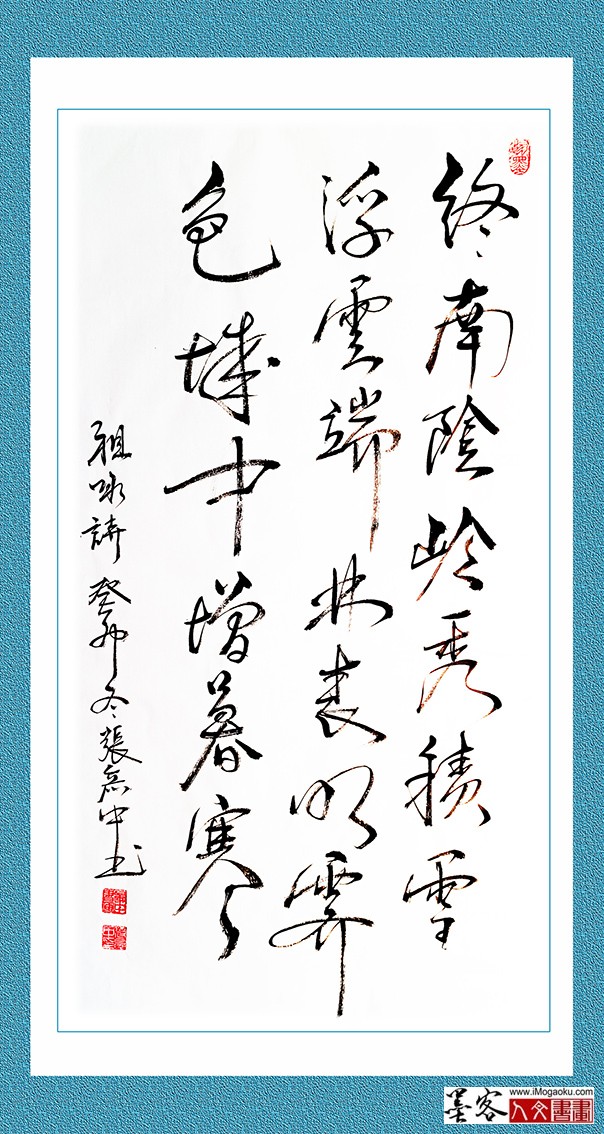 終南陰岭秀積雪
浮雲端林表明霽
色城中增暮寒
祖咏詩 癸卯冬 張志中書
墨客
www.iMogaoku.com
人文書畫